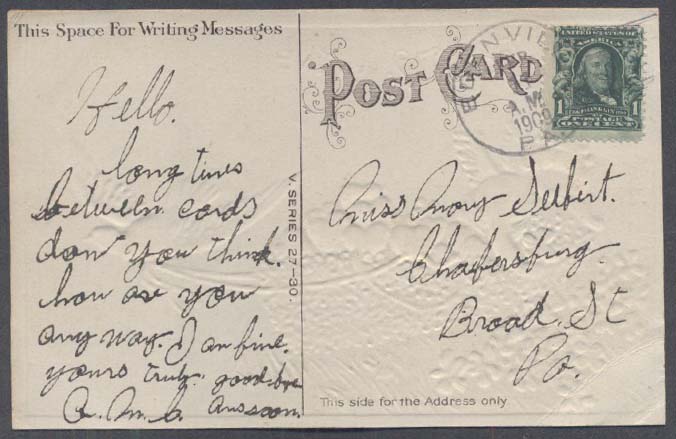 This Space For Writing Messages
Hello.
long times
between cards
don you think.
how are you
any way. I am fine.
yours truly. good bye
Ans soon.
V. SERIES 27-30.
POST CARD
A.M.
1909
PA
UNITED STATES OF
AMERICA
1 1
POSTAGE
ONE CENT
Miss Mary Seibert.
Chabersburg.
Broad. St
Pa.
This side for the Address only